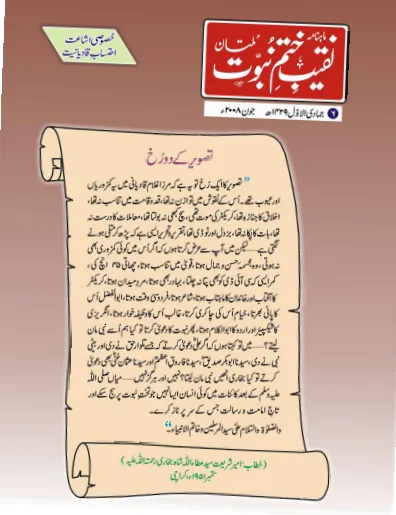 خصوصی اشاعت
احتساب قادیانیت
ماہنامہ
نقیب ختم نبوت
ملتان
۶ جمادی الاوّل ۱۴۲۹ھ جون ۲۰۰۸ء
تصویر کے دو رُخ
"تصویر کا ایک رُخ تو یہ ہے کہ مرزا غلام قادیانی میں یہ کمزوریاں
اور عیوب تھے۔ اُس کے نقوش میں توازن نہ تھا، قد و قامت میں تناسب نہ تھا،
اخلاق کا جنازہ تھا، کریکٹر کی موت تھی، سچ کبھی نہ بولتا تھا، معاملات کا درست نہ
تھا، بات کا پکا نہ تھا، بزدل اور ٹوڈی تھا، تقریر و تحریر ایسی ہے کہ پڑھ کر متلی ہونے
لگتی ہے۔ لیکن میں آپ سے عرض کرتا ہوں کہ اگر اُس میں کوئی کمزوری بھی
نہ ہوتی، وہ مجسمۂ حسن و جمال ہوتا، قویٰ میں تناسب ہوتا، چھاتی ۴۵ انچ کی،
کمر ایسی کہ سی آئی ڈی کو بھی پتا نہ چلتا، بہادر بھی ہوتا، مردِ میدان ہوتا، کریکٹر
کا آفتاب اور خاندان کا ماہتاب ہوتا، شاعر ہوتا، فردوسیِ وقت ہوتا، ابوالفضل اُس
کا پانی بھرتا، خیام اُس کی چاکری کرتا، غالب اُس کا وظیفہ خوار ہوتا، انگریزی
کا شیکسپیئر اور اردو کا ابوالکلام ہوتا، پھر نبوت کا دعویٰ کرتا تو کیا ہم اُسے نبی مان
لیتے؟ میں تو کہتا ہوں کہ اگر علیؓ دعویٰ کرتے کہ جسے تلوار حق نے دی اور بیٹی
نبی نے دی، سیدنا ابوبکر صدیقؓ، سیدنا فاروق اعظمؓ اور سیدنا عثمان غنیؓ بھی دعویٰ
کرتے تو کیا بخاری اُنھیں نبی مان لیتا؟ نہیں اور ہرگز نہیں۔ میاں صلی اللہ
علیہ وسلم کے بعد کائنات میں کوئی انسان ایسا نہیں جو تختِ نبوت پر سج سکے اور
تاجِ امامت و رسالت جس کے سر پر ناز کرے۔
والصلوٰۃ والسلام علیٰ سید المرسلین و خاتم الانبیاء۔"
(خطاب: امیر شریعت سید عطاء اللہ شاہ بخاری رحمۃ اللہ علیہ)
ستمبر ۱۹۵۱ء، کراچی